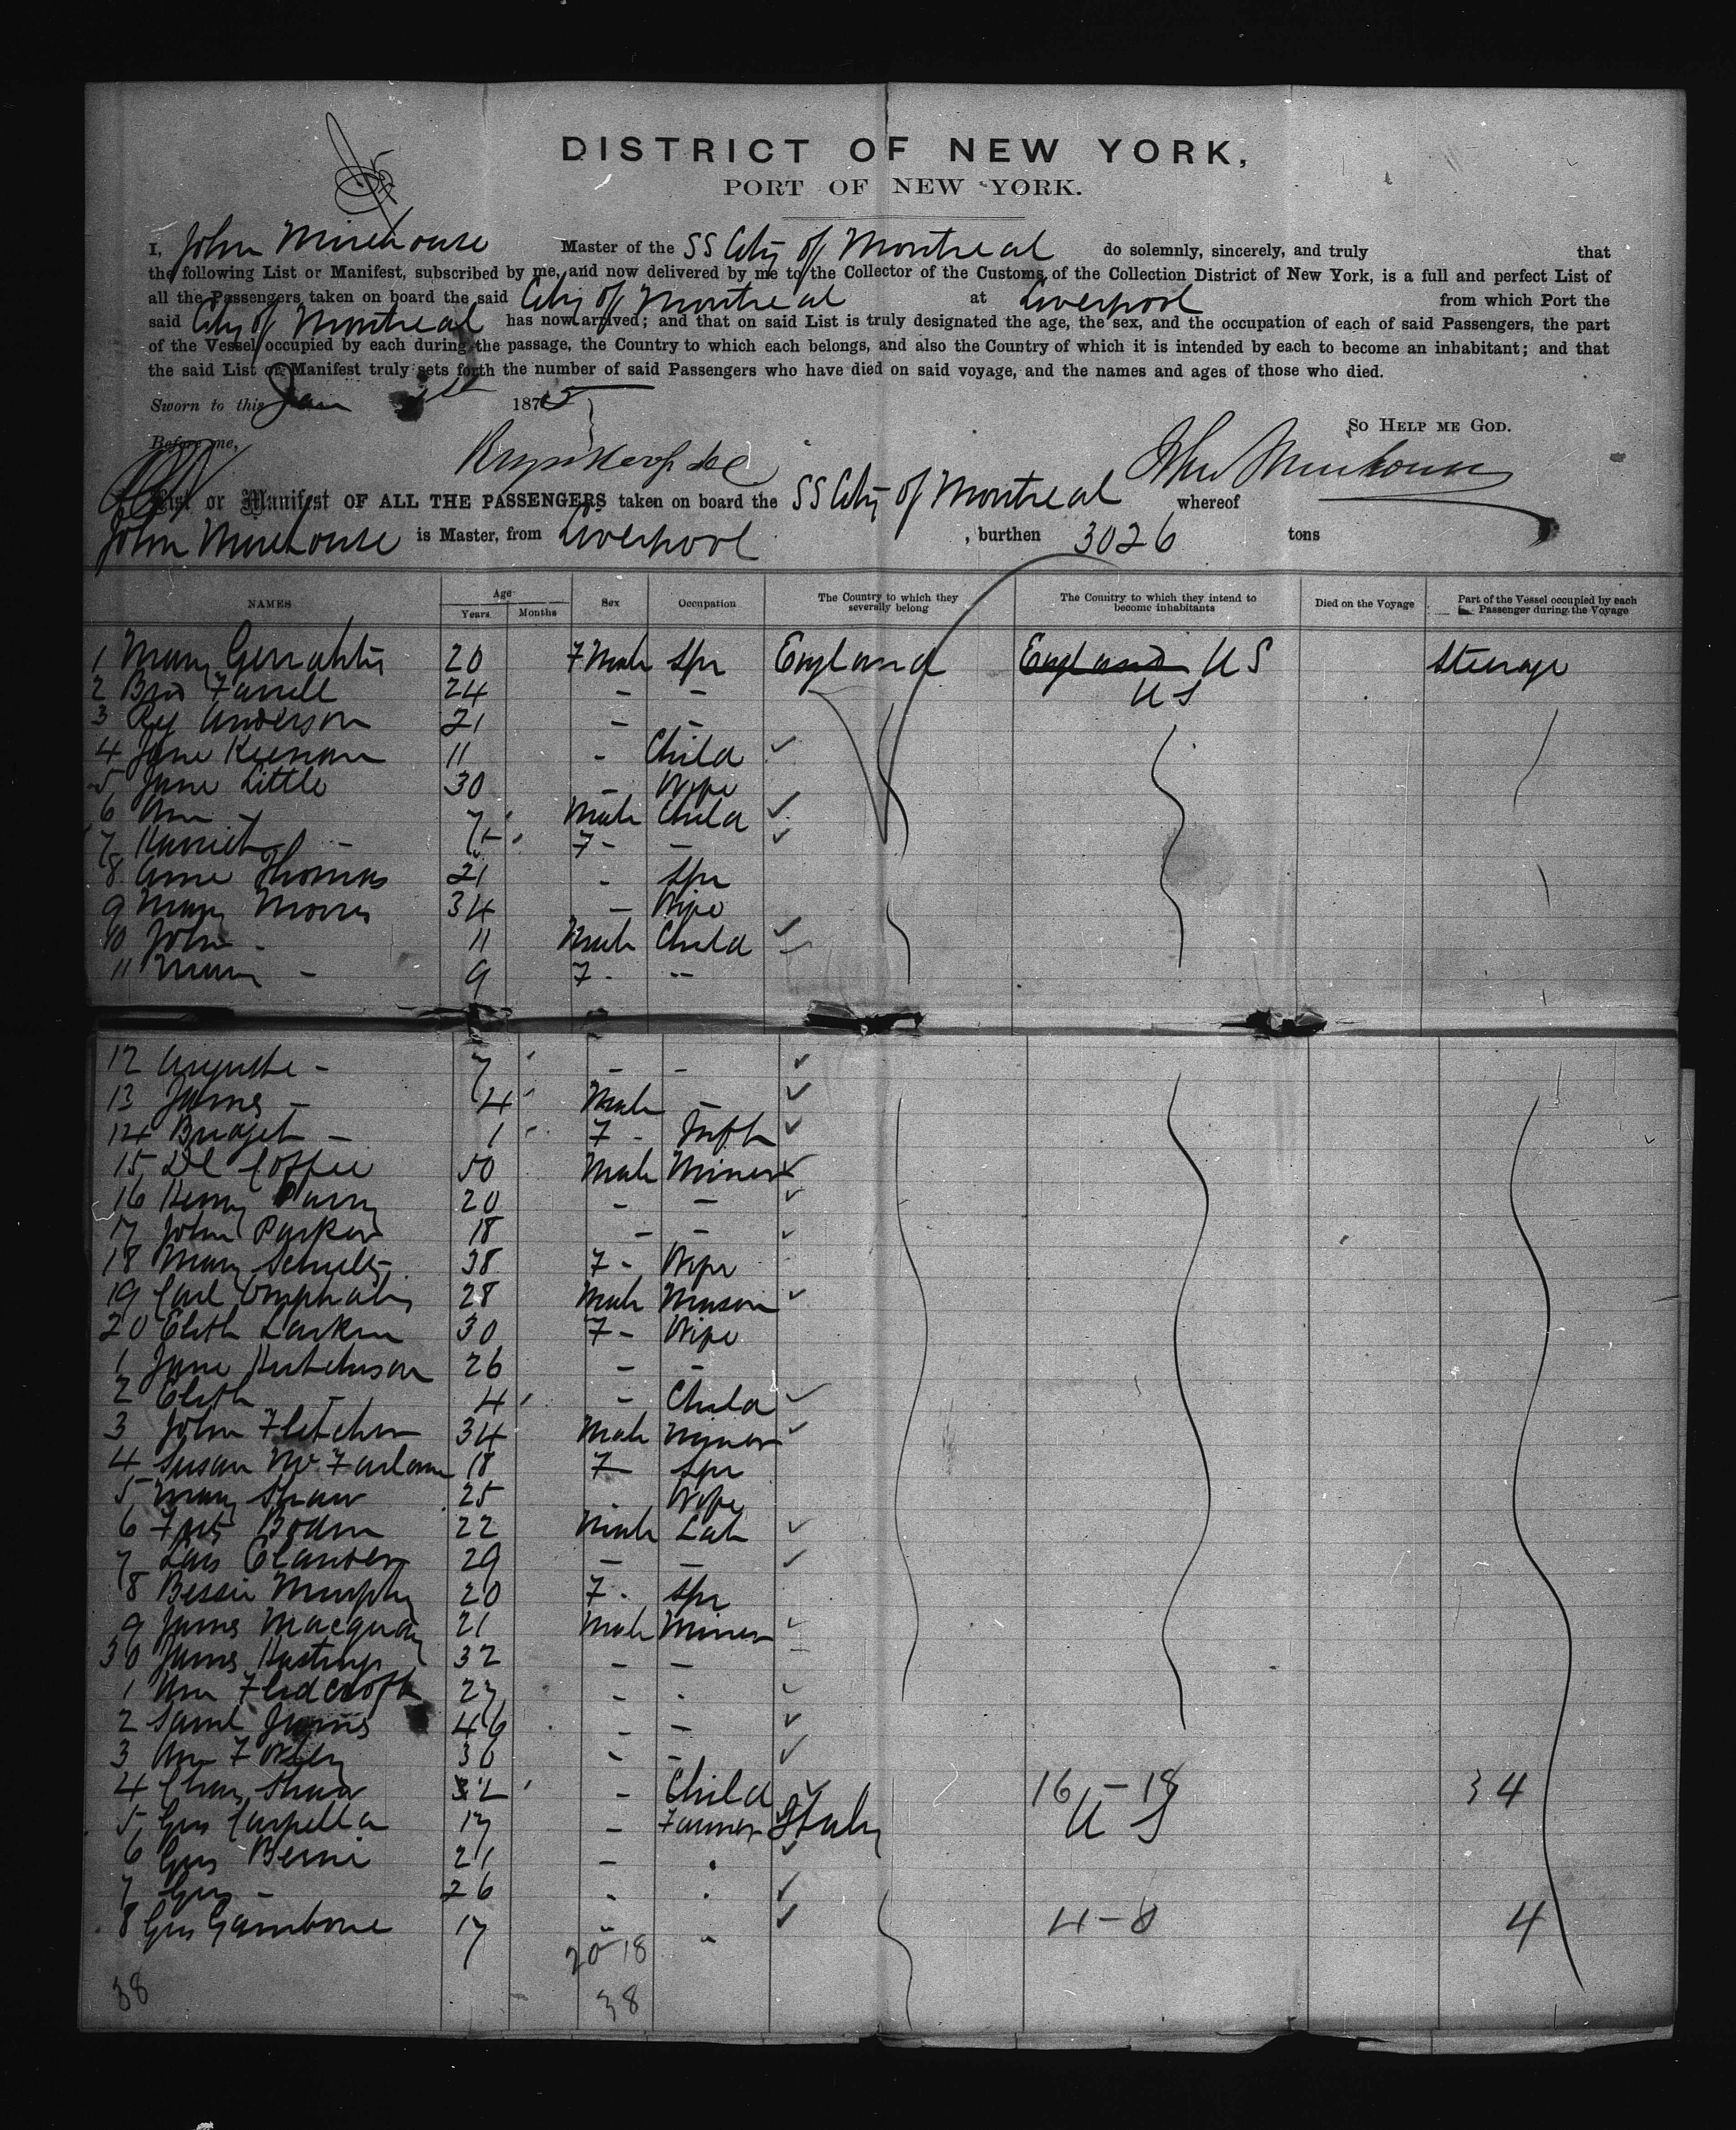 DISTRICT OF NEW YORK,
PORT OF NEW YORK.
I, John Mirehouse Master of the SS City of Montreal do solemnly, sincerely, and truly that
the following List or Manifest, subscribed by me, and now delivered by me to the Collector of the Customs of the Collection District of New York, is a full and perfect List of
all the Passengers taken on board the said City of Montreal at Liverpool from which Port the
said City of Montreal has now arrived; and that on said List is truly designated the age, the sex, and the occupation of each of said Passengers, the part
of the Vessel occupied by each during the passage, the Country to which each belongs, and also the Country of which it is intended by each to become an inhabitant; and that
the said List or Manifest truly sets forth the number of said Passengers who have died on said voyage, and the names and ages of those who died.
Sworn to this Jan 1875
So Help me God.
Before me,
John Mirehouse
List or Manifest OF ALL THE PASSENGERS taken on board the SS City of Montreal whereof
John Mirehouse is Master, from Liverpool, burthen 3026 tons
NAMES Age Years Months Sex Occupation The Country to which they severally belong The Country to which they intend to become inhabitants Died on the Voyage Part of the Vessel occupied by each Passenger during the Voyage
1 Mary Gerrahty 20 Female Spr England England US Steerage
2 Brid Farrell 24 - - US
3 Anderson 21 - -
4 Jane Keenan 11 - Child
5 Jane Little 30 - Wife
6 Wm - 7 Male Child
7 Harriet - F - -
8 Anne Thomas 21 - Spr
9 Mary Morris 34 - Wife
10 John - 11 Male Child
11 Mary - 9 F - -
12 Auguste - 7 - -
13 James - 4 Male -
14 Bridget - 1 F - Inft
15 Coffee 50 Male Miner
16 Henry Parry 20 - -
17 John Parker 18 - -
18 Mary Schultz 38 F - Wife
19 Carl 28 Male Mason
20 Elith Larkin 30 F - Wife
1 Jane Hutchinson 26 - -
2 Elith - 4 - Child
3 John Fletcher 34 Male Miner
4 Susan McFarlane 18 F - Spr
5 Mary Shaw 25 Wife
6 Bodin 22 Male Lab
7 Lars 29 - -
8 Bessie Murphy 20 F - Spr
9 James Macquay 21 Male Miner
30 James Hastings 32 - -
1 Wm 27 - -
2 Saml James 46 - -
3 Wm 30 - -
4 Chas Shaw - Child 16 - 18 34
5 Gus Carpella 17 - Farmer Italy US
6 Gus Berni 21 -
7 Gus - 26
8 Gus Gambone 17 " " 4 - 0 4
20 18
38 38